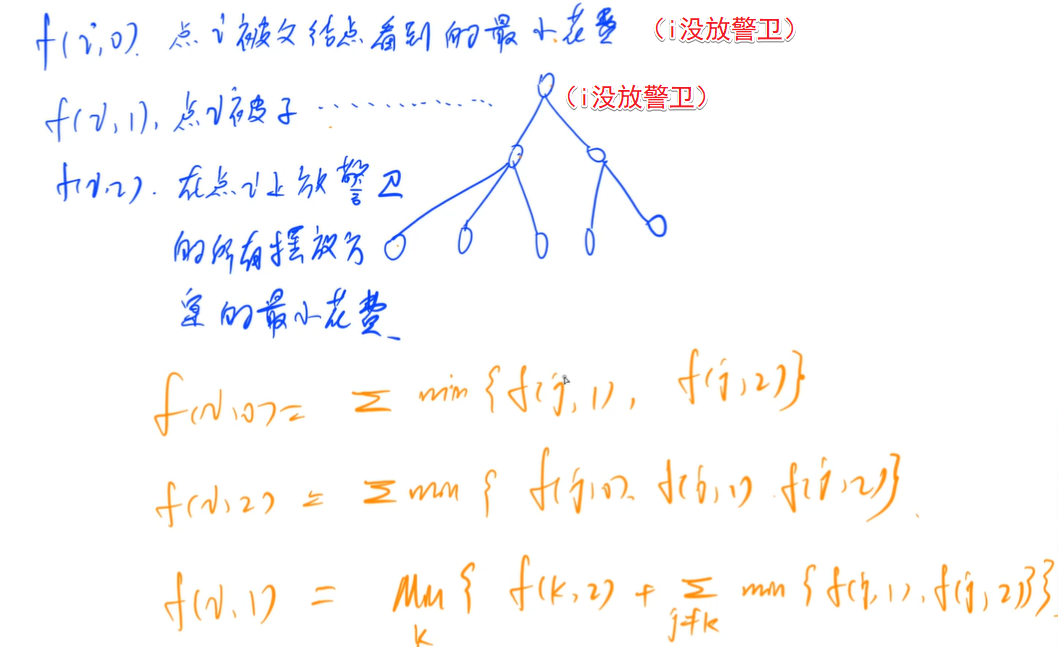 f(i,0). 点i被父结点看到的最小花费 (i没放警卫)
f(i,1), 点i被子 ············ (i没放警卫)
f(i,2). 在点i上放警卫
的所有摆放方
案的最小花费
f(i,0) = Σ min { f(j,1), f(j,2)}
f(i,2) = Σ min { f(j,0). f(j,1) f(j,2)}
f(i,1) = min { f(k,2) + Σ min { f(j,1), f(j,2)}}
k j≠k